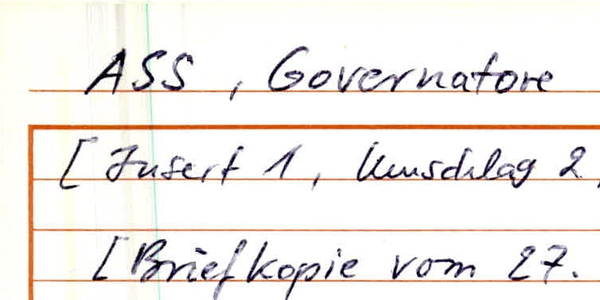 ASS, Governatore
[Insert 1, Umschlag 2,
[Briefkopie vom 27.